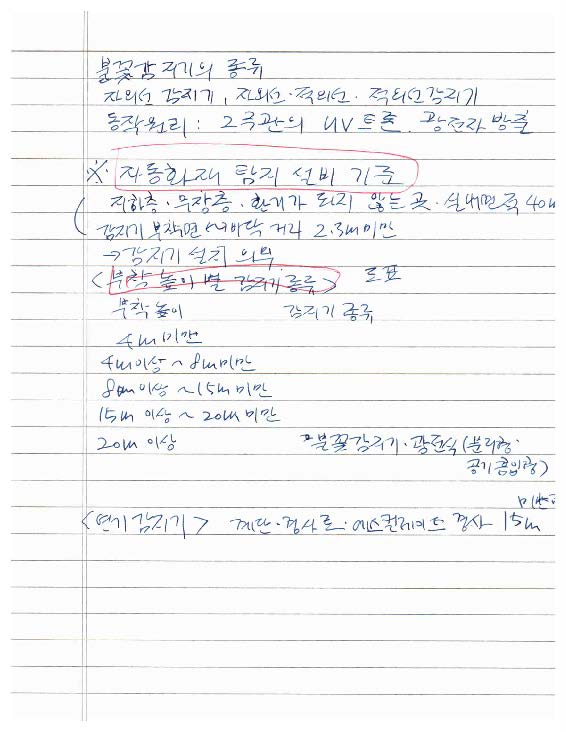 불꽃감지기의 종류
자외선 감지기, 자외선·적외선·적외선감지기
동작원리 : 2극관의 UV트론. 광전자 방출
※. 자동화재 탐지 설비 기준
지하층·무창층·환기가 되지 않는 곳·실내면적 40m
감지기 부착면 바닥 거리 2.3m미만
→감지기 설치 의무
<부착 높이 별 감지기 종류> 도표
부착 높이 감지기 종류
4m 미만
4m이상 ~ 8m미만
8m이상 ~ 15m미만
15m 이상 ~ 20m 미만
20m 이상 불꽃감지기·광전식(분리형·
공기흡입형)
미만
<연기감지기> 계단·경사로·에스컬레이트 경사 15m